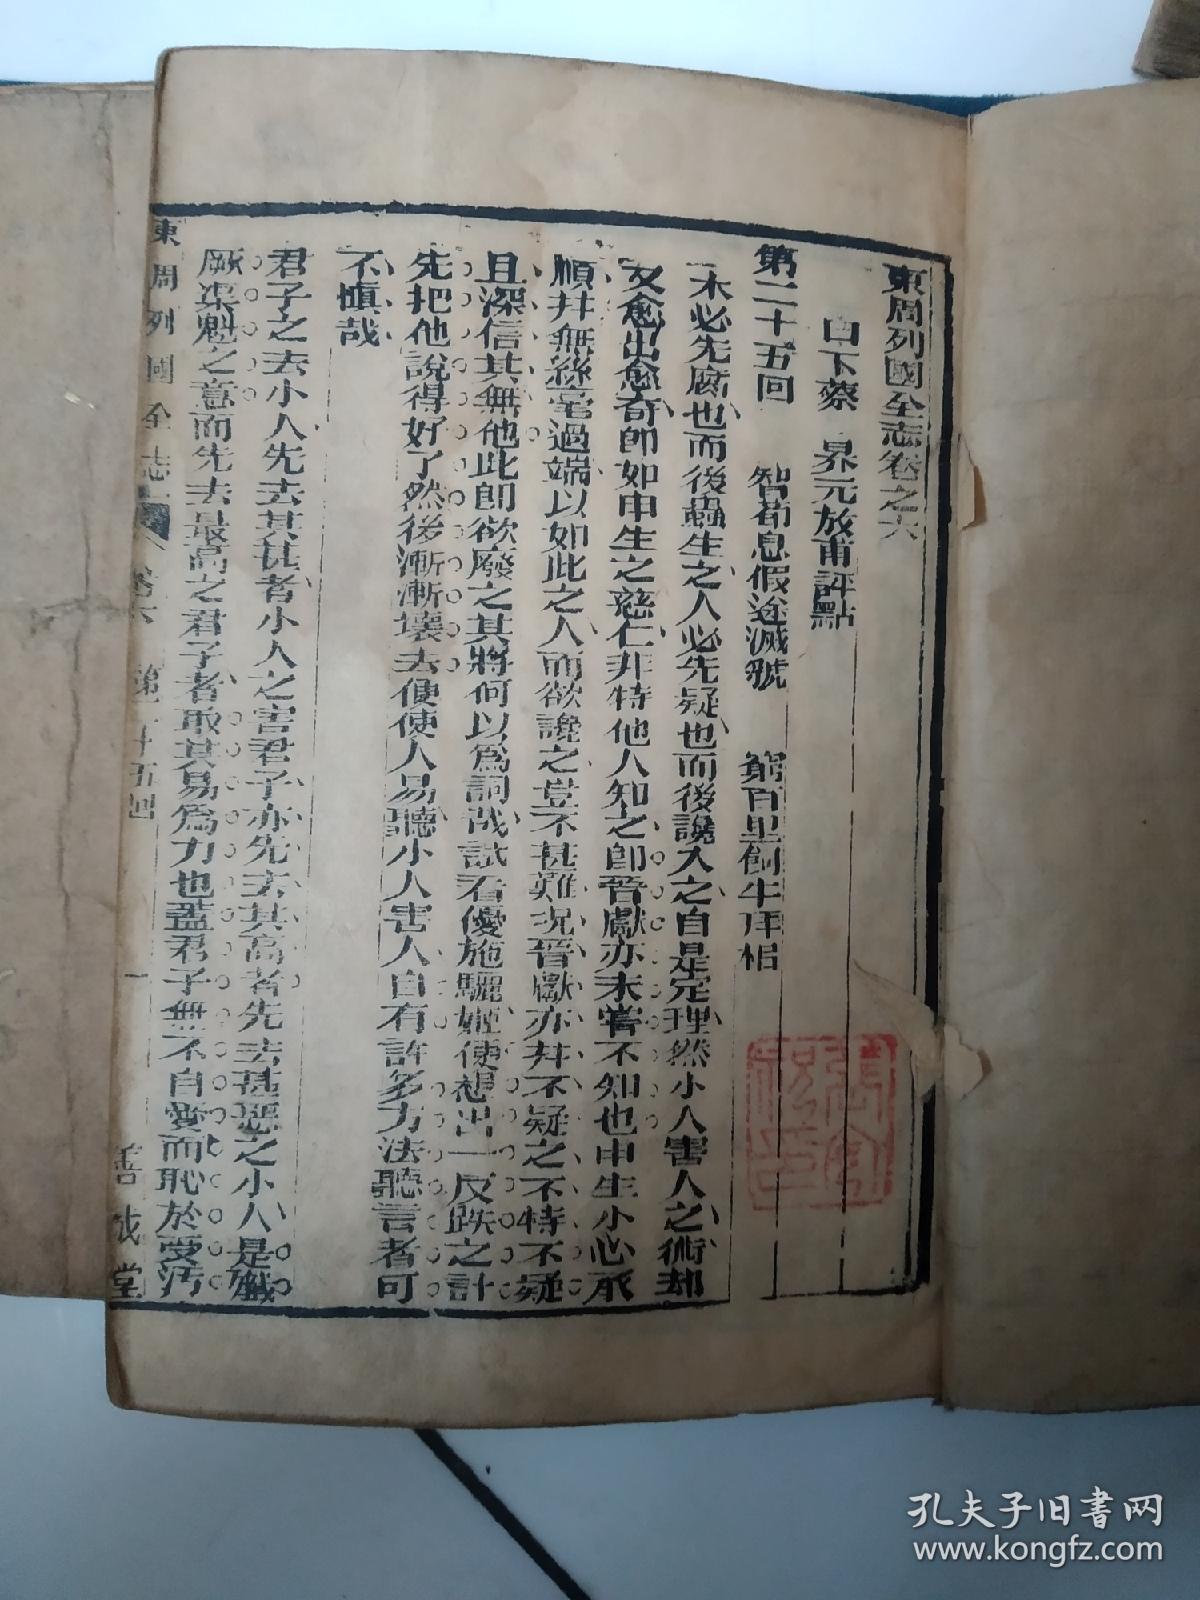 東周列國全志卷之六
白下蔡 奡元放甫評點
第二十五回 智荀息假途滅虢 窮百里飼牛拜相
木必先腐也而後蟲生之人必先疑也而後讒入之自是定理然小人害人之術却
又愈出愈奇即如申生之慈仁非特他人知之即晉獻亦未嘗不知也申生小心承
順并無絲毫過端以如此之人而欲讒之豈不甚難况晉獻亦并不疑之不特不疑
且深信其無他此即欲廢之其將何以爲詞哉試看優施驪姬便想出一反跌之計
先把他說得好了然後漸漸壞去便使人易聽小人害人自有許多方法聽言者可
不慎哉
君子之去小人先去其甚者小人之害君子亦先去其高者先去甚惡之小人是殲
厥渠魁之意而先去最高之君子者取其易爲力也蓋君子無不自愛而恥於受汚
東周列國全志 卷六 第二十五回 一 善成堂
孔夫子旧书网
www.kongfz.com